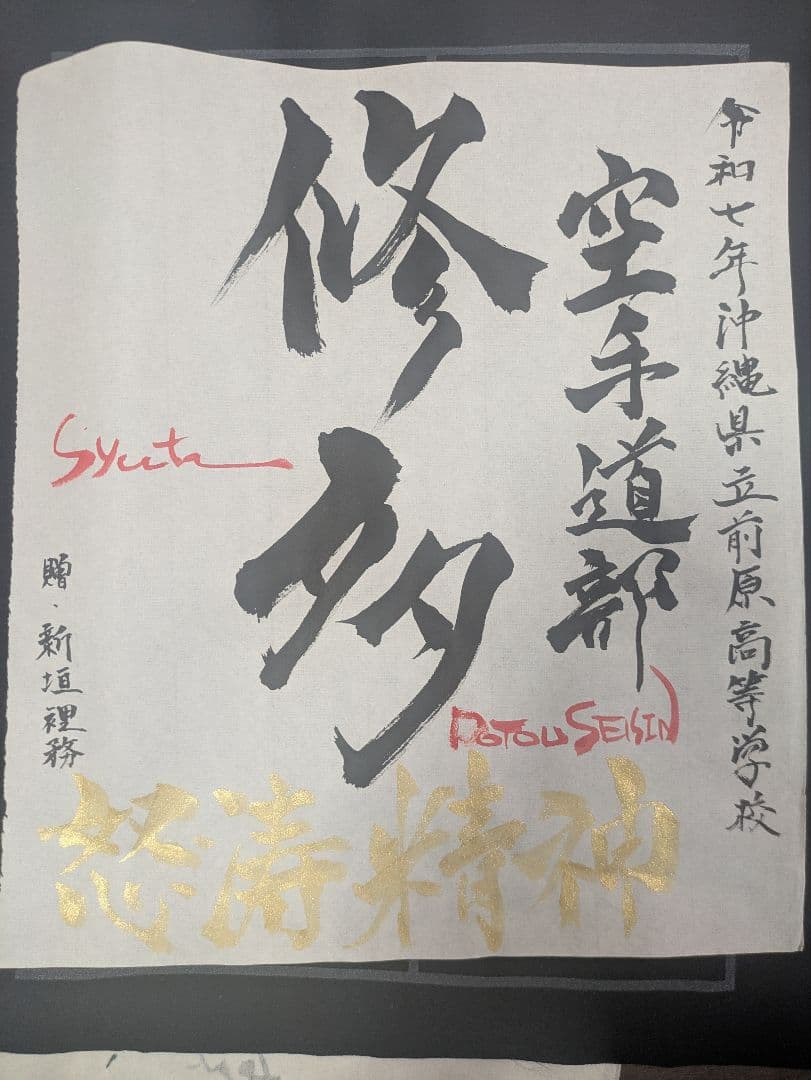 令和七年沖縄県立前原高等学校
空手道部
修多
Syuta
DOTOU SEISIN
贈・新垣裡務
怒涛精神